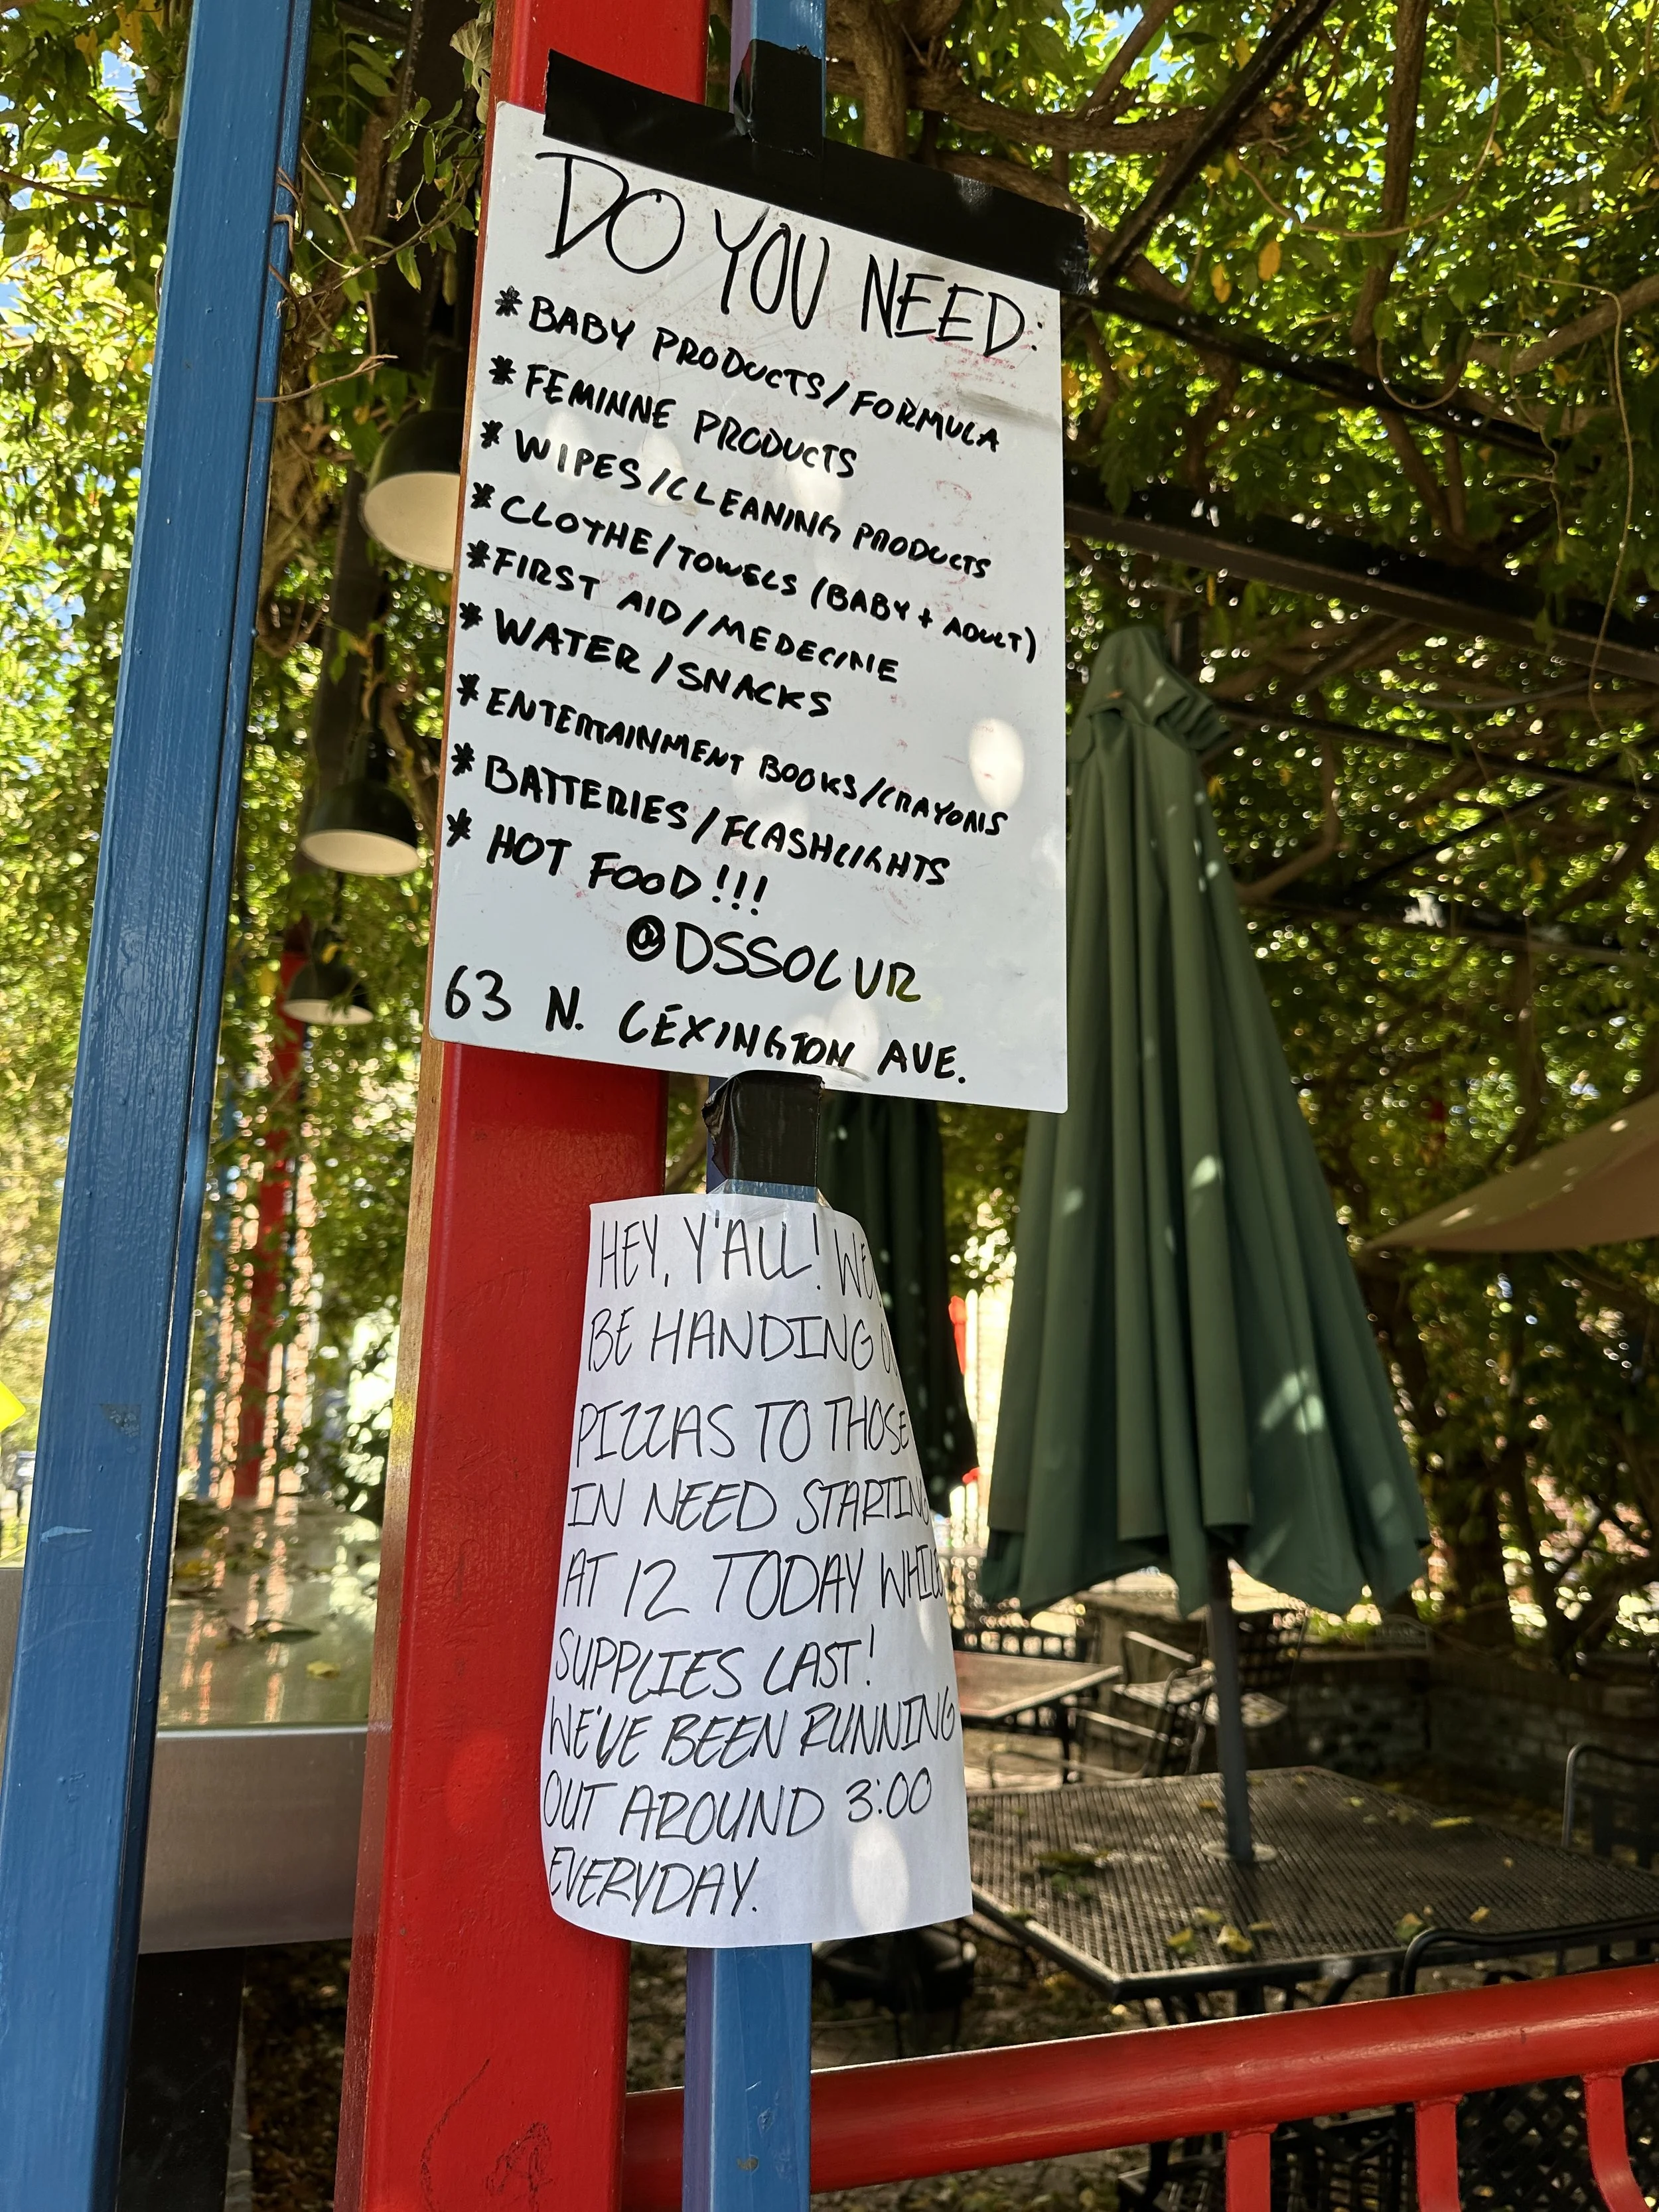 DO YOU NEED:
* BABY PRODUCTS/FORMULA
* FEMINNE PRODUCTS
* WIPES/CLEANING PRODUCTS
* CLOTHE/TOWELS (BABY + ADULT)
* FIRST AID/MEDECINE
* WATER/SNACKS
* ENTERTAINMENT BOOKS/CRAYONS
* BATTERIES/FLASHLIGHTS
* HOT FOOD!!!
@DSSOLVR
63 N. LEXINGTON AVE.
HEY, Y'ALL!
BE HANDING
PIZZAS TO THOSE
IN NEED STARTING
AT 12 TODAY WHILE
SUPPLIES LAST!
WE'VE BEEN RUNNING
OUT AROUND 3:00
EVERYDAY.